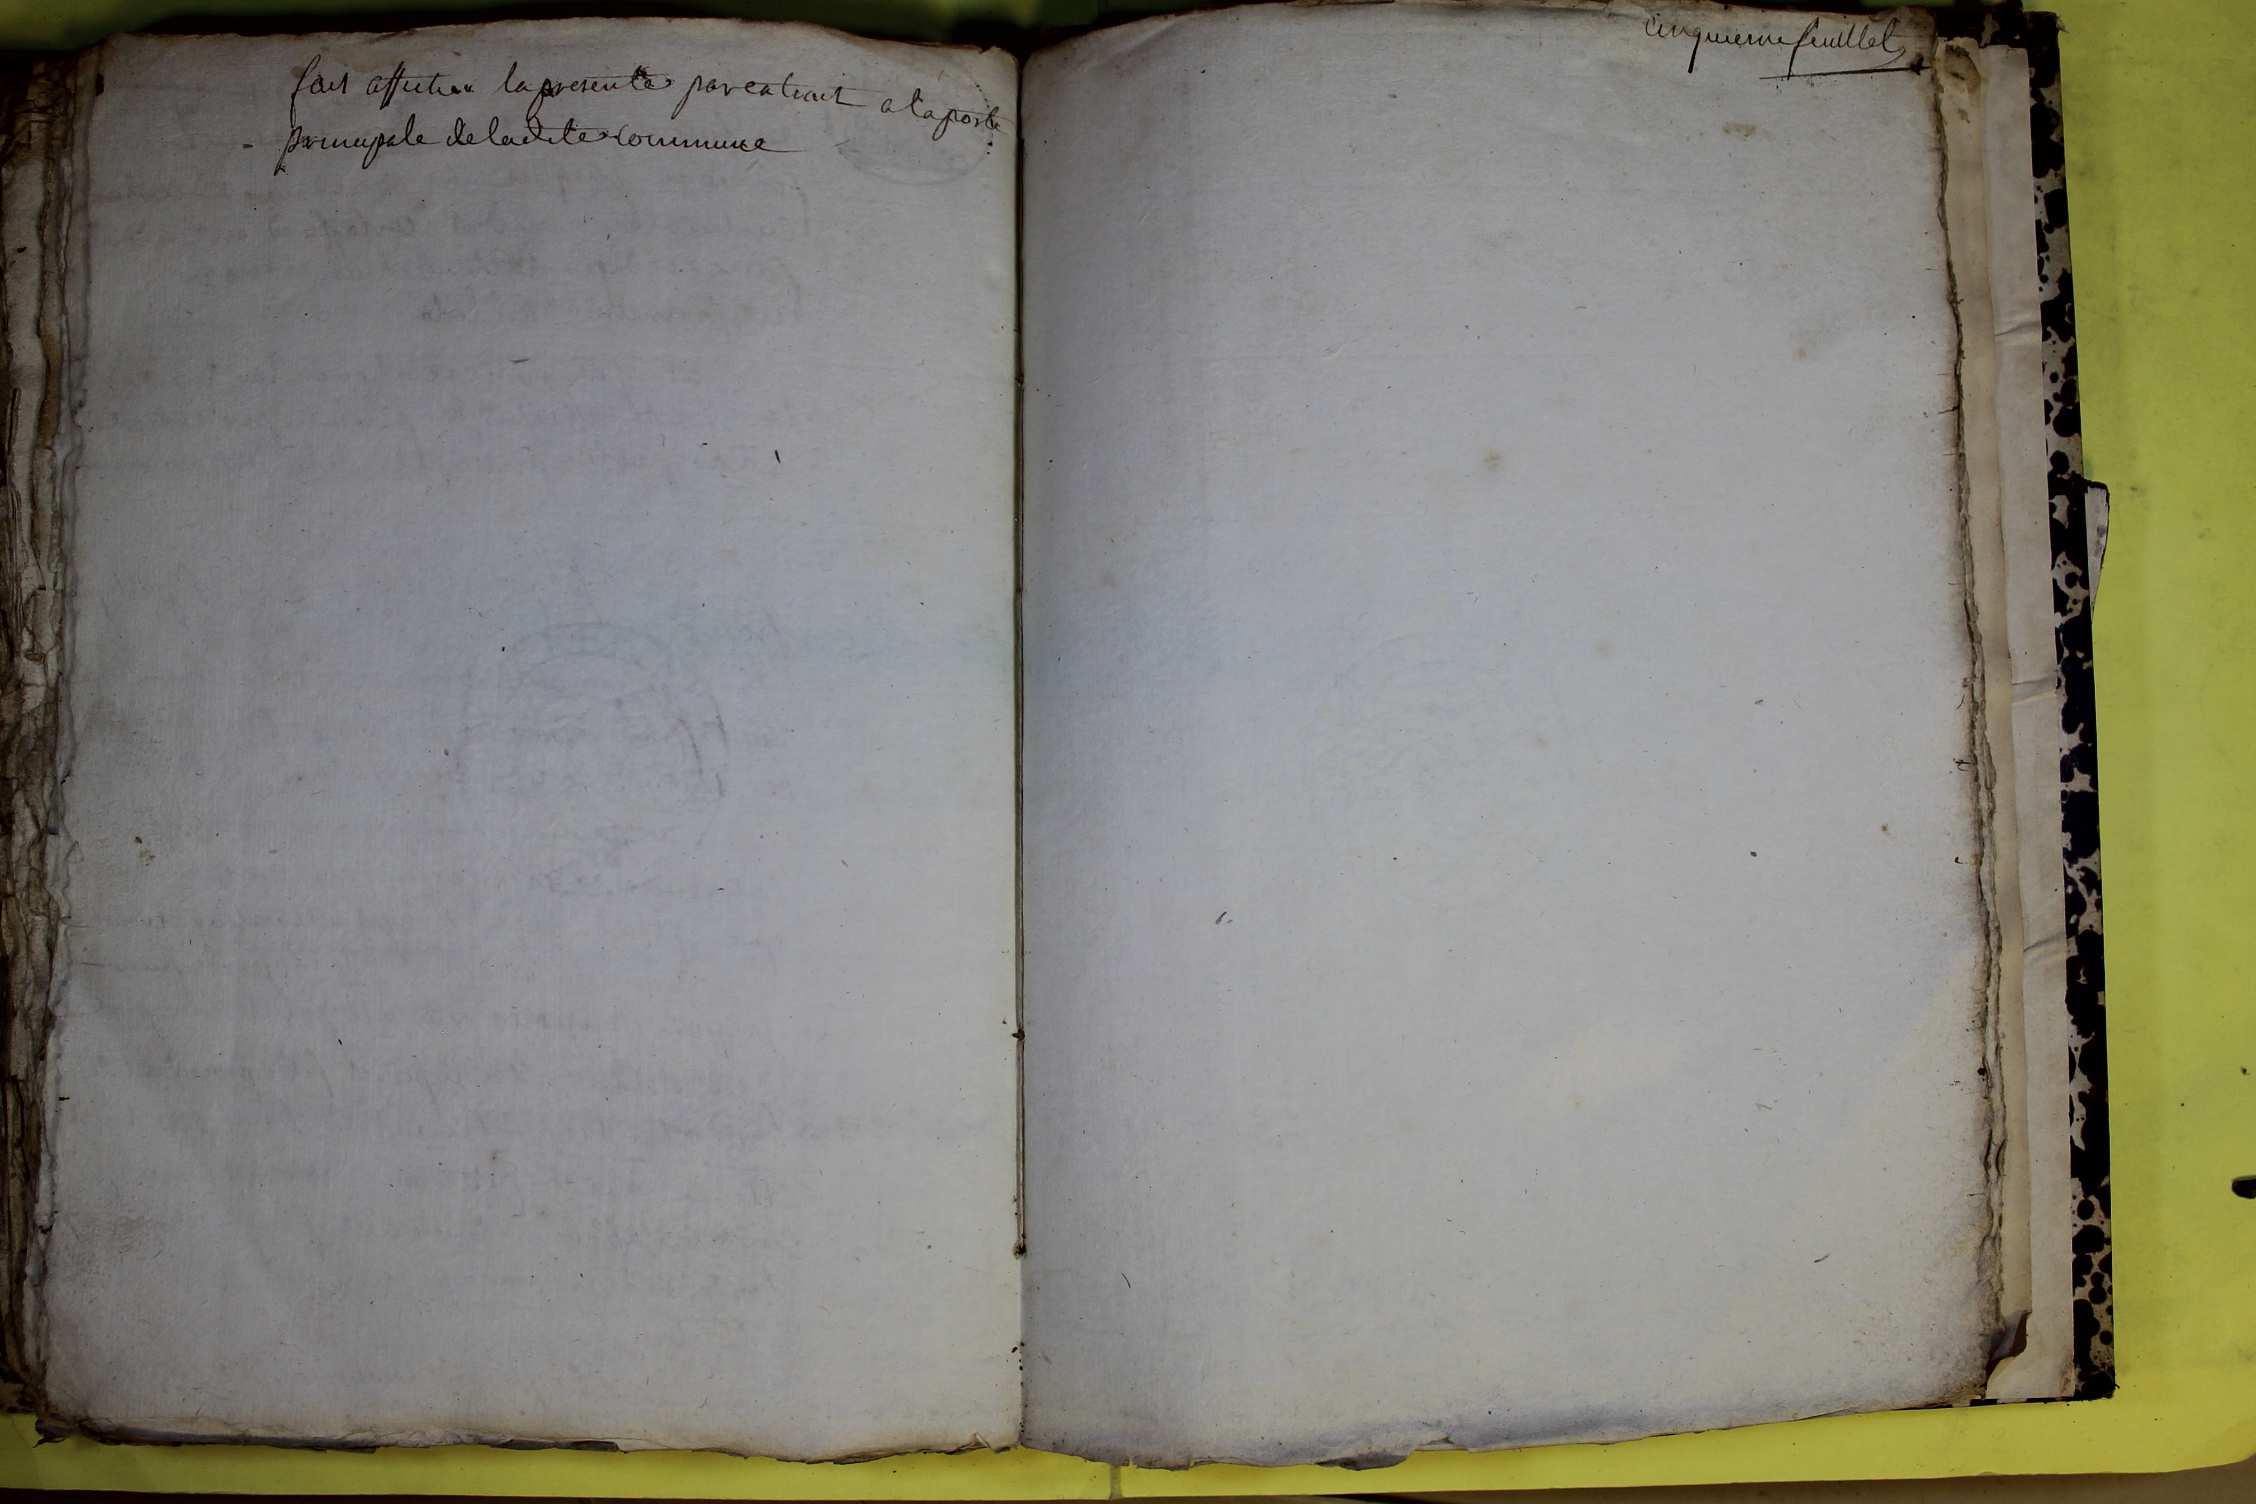 fait afficher la presente par extrait a la porte
principale de ladite commune
cinquieme feuillet